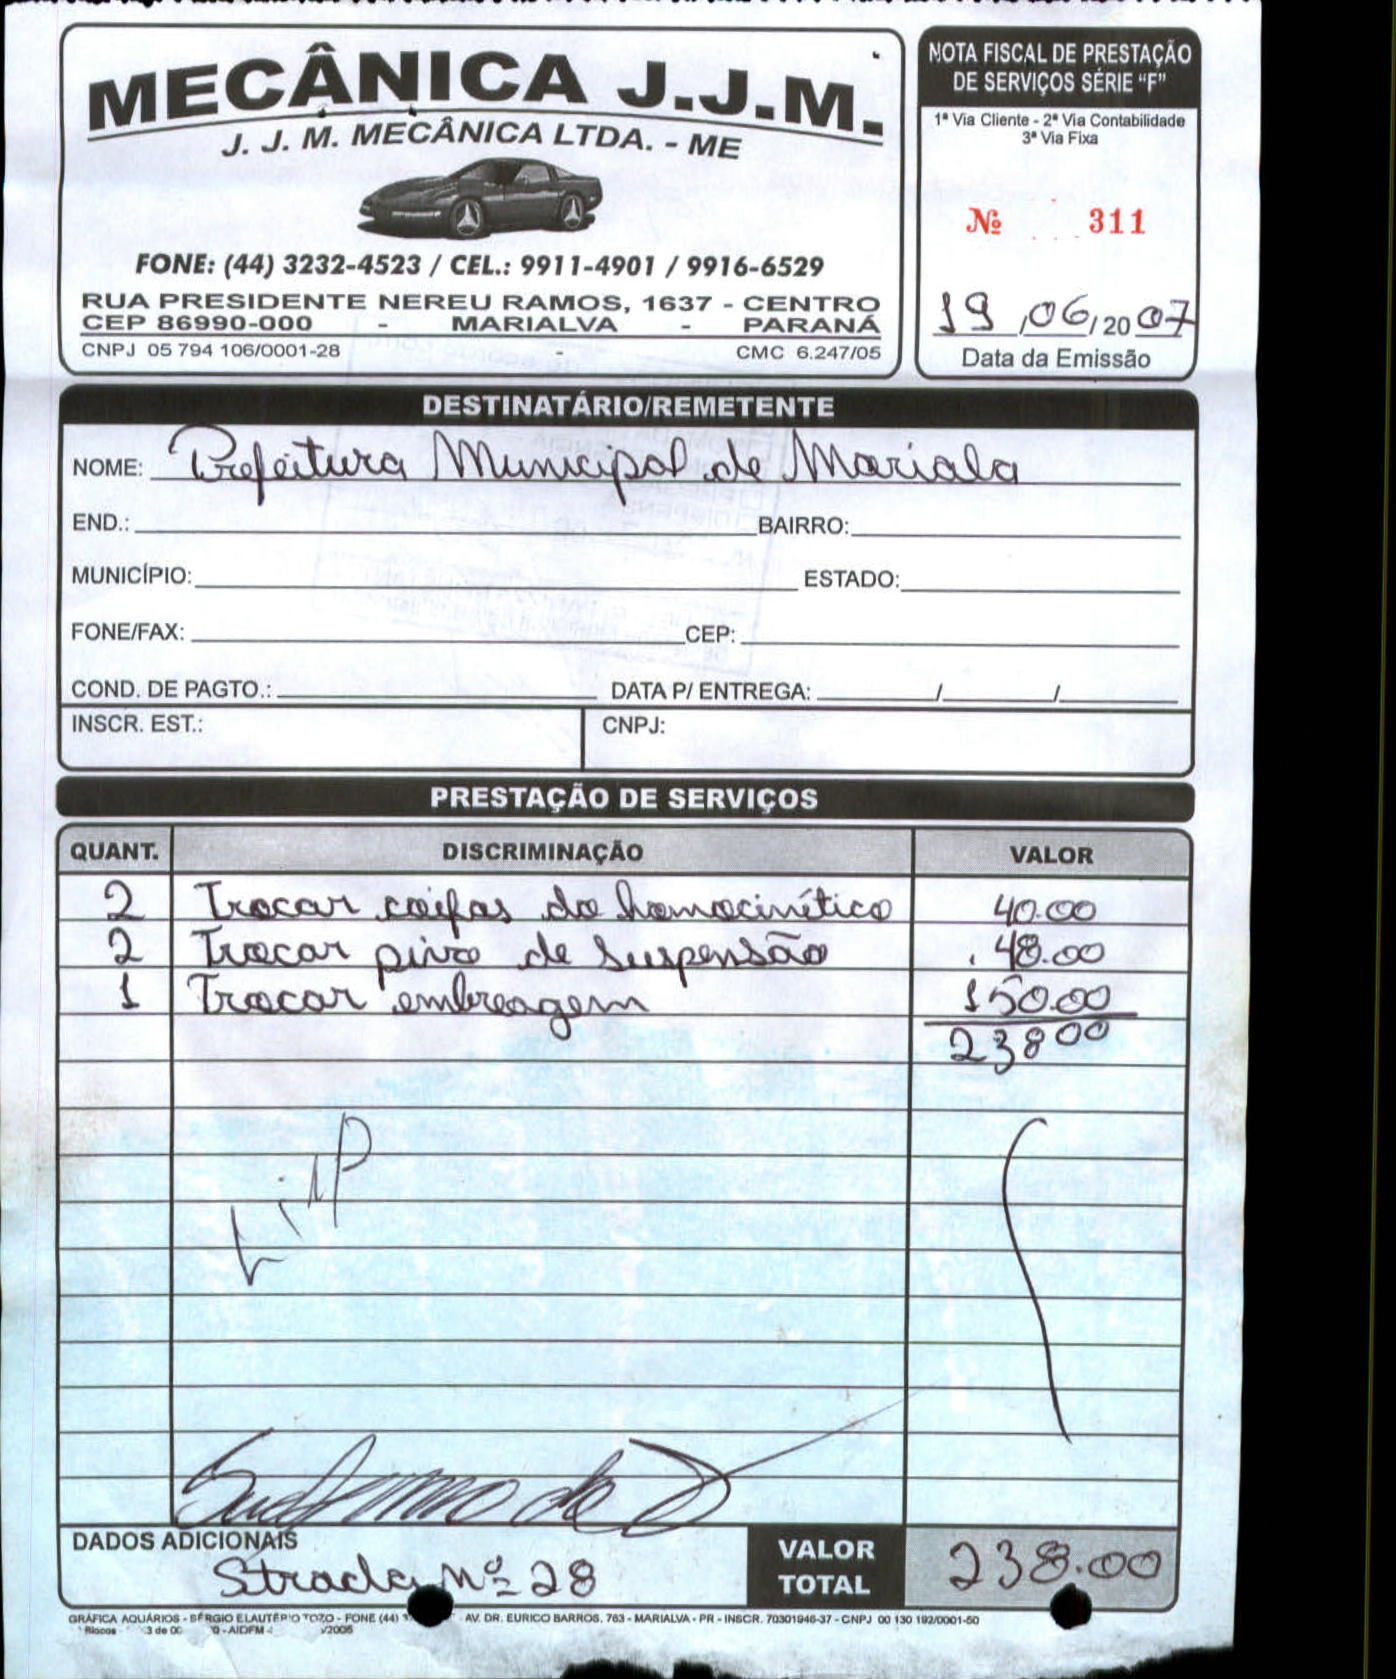 MECÂNICA J.J.M.
J. J. M. MECÂNICA LTDA. - ME
FONE: (44) 3232-4523 / CEL.: 9911-4901 / 9916-6529
RUA PRESIDENTE NEREU RAMOS, 1637 - CENTRO
CEP 86990-000 - MARIALVA - PARANÁ
CNPJ 05 794 106/0001-28 - CMC 6.247/05
NOTA FISCAL DE PRESTAÇÃO
DE SERVIÇOS SÉRIE "F"
1ª Via Cliente - 2ª Via Contabilidade
3ª Via Fixa
Nº 311
19/06/2007
Data da Emissão
DESTINATÁRIO/REMETENTE
NOME: Prefeitura Municipal de Mariala
END.: BAIRRO:
MUNICÍPIO: ESTADO:
FONE/FAX: CEP:
COND. DE PAGTO.: DATA P/ ENTREGA: / /
INSCR. EST.: CNPJ:
PRESTAÇÃO DE SERVIÇOS
QUANT. DISCRIMINAÇÃO VALOR
2 Trocar coifas do homocinético 40.00
2 Trocar pivo de suspensão 48.00
1 Trocar embreagem 150.00
238 00
DADOS ADICIONAIS
Strada Nº 28
VALOR TOTAL 238.00
GRÁFICA AQUÁRIOS - SÉRGIO ELAUTÉRIO TOZO - FONE (44) AV. DR. EURICO BARROS, 763 - MARIALVA - PR - INSCR. 70301946-37 - CNPJ 00 130 192/0001-50
Blocos 3 de - AIDFM /2006